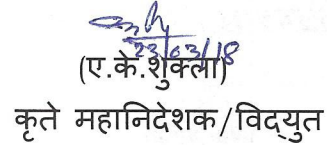 23/03/18
(ए.के.शुक्ला)
कृते महानिदेशक/विद्युत